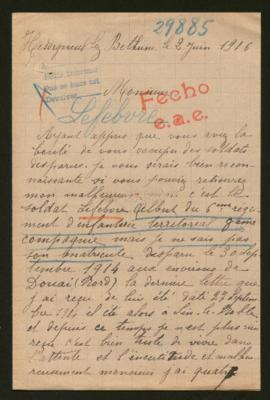 29885
Hesdigneul Lz Bethune, le 2 Juin 1916
Monsieur
Lefebvre
Fecho
e.a.e.
Ayant appris que vous avez la
bonté de vous occuper des soldats
disparus, je vous serais bien recon-
naissante si vous pouviez retrouver
mon malheureux c'est le
soldat Lefebvre Albert du 6eme regi-
ment d'infanterie territorial 8eme
compagnie mais je ne sais pas
son matricule disparu le 30 sep-
tembre 1914 aux environs de
Douai (Nord) la dernière lettre que
j'ai reçue de lui été daté 27 septem
bre 1914 et été alors à Sin-le-Noble
et depuis ce temps je n'est plus rien
reçu c'est bien triste de vivre dans
l'attente et l'incertitude et malheu
reusement monsieur j'ai quatre